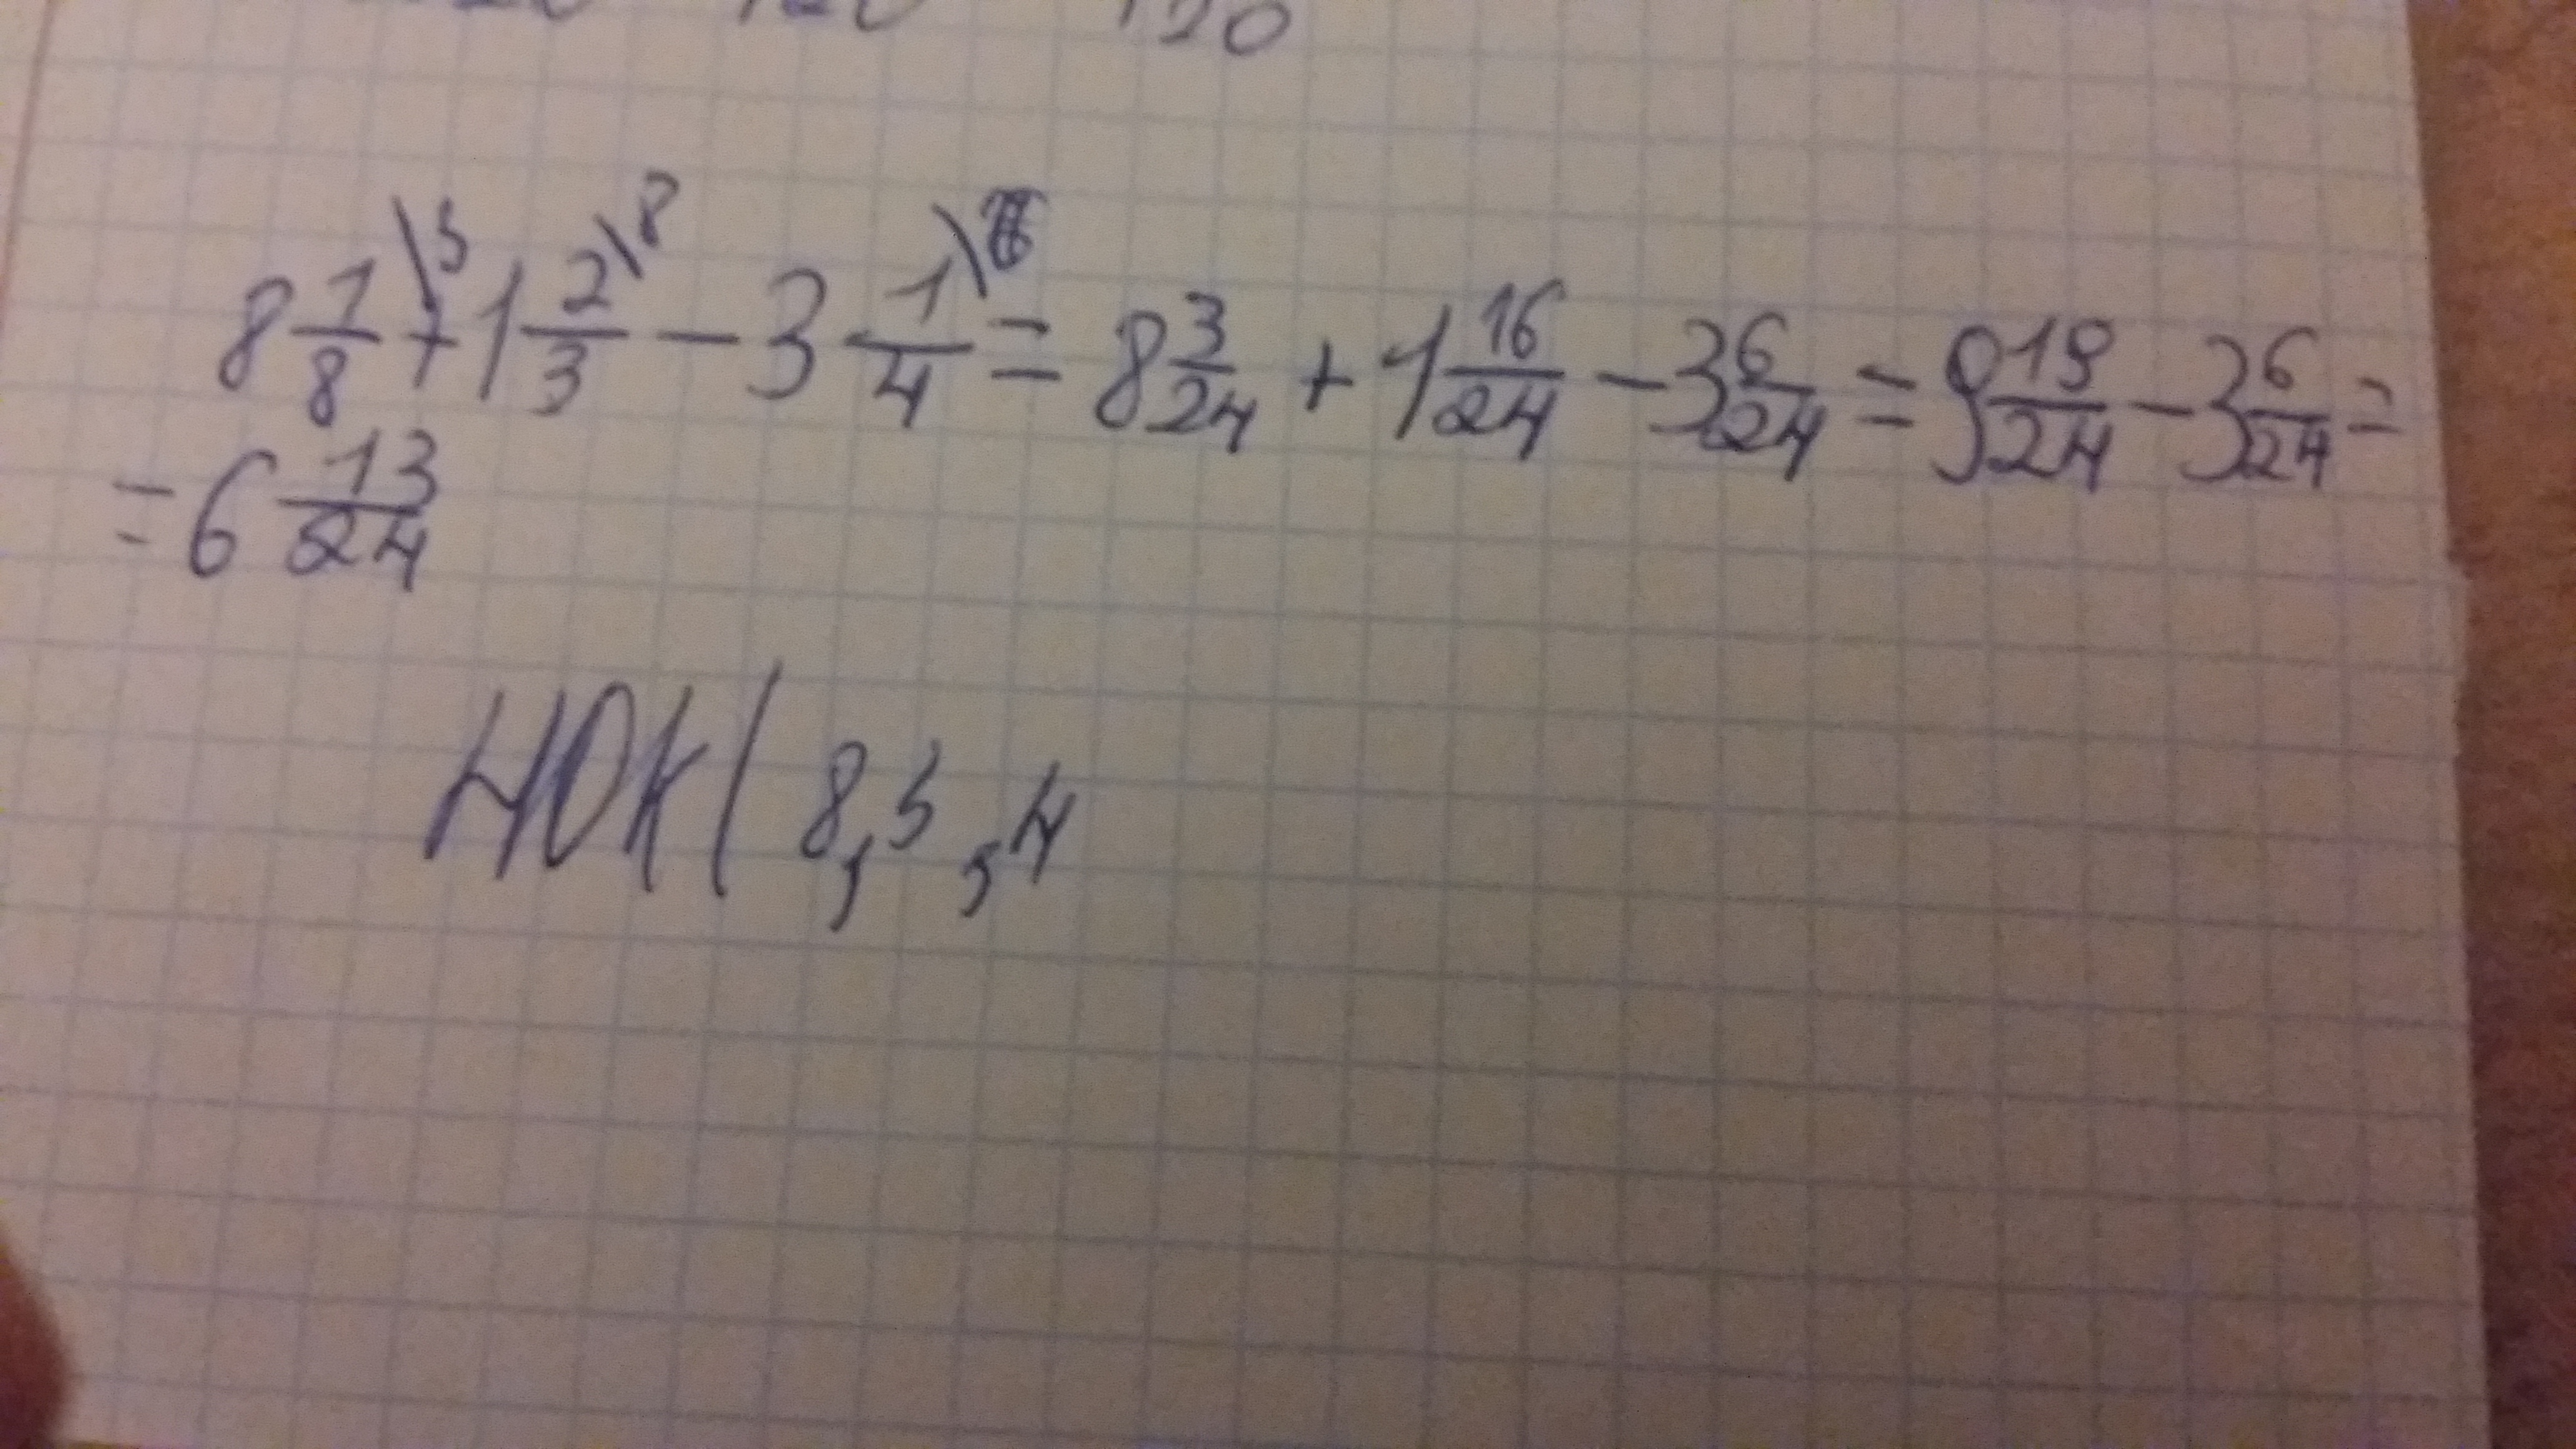 120
8 1/8 \3 + 1 2/3 \8 - 3 1/4 \6 = 8 3/24 + 1 16/24 - 3 6/24 = 9 19/24 - 3 6/24 =
= 6 13/24
НОК( 8, 3, 4